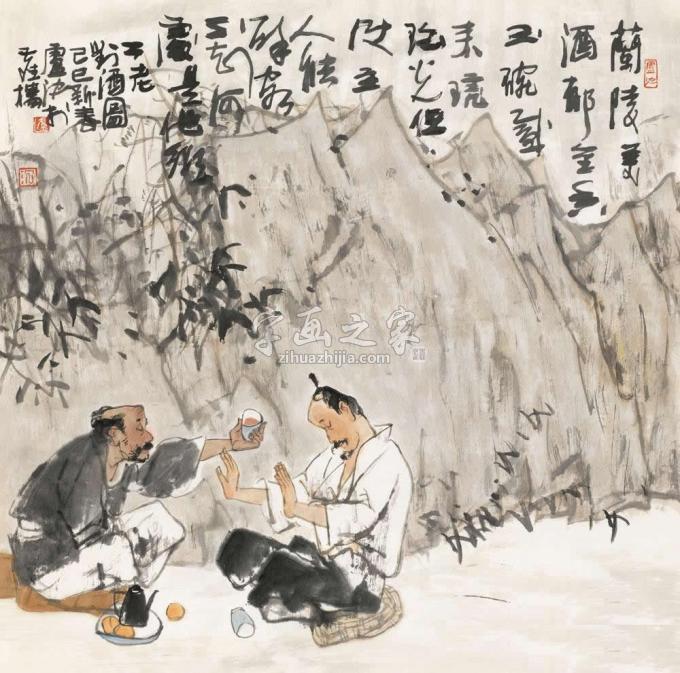 蘭陵美
酒郁金香
玉碗盛
来琥
珀光但
使主
人能
醉客
不知何
處是他鄉
二老
對酒圖
己巳新春
盧沉於
字画之家
zihuazhijia.com